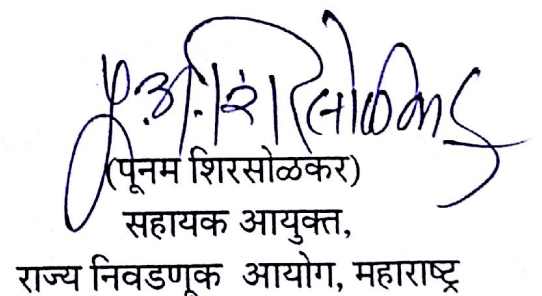 पू.अ.शिरसोळकर
(पूनम शिरसोळकर)
सहायक आयुक्त,
राज्य निवडणूक आयोग, महाराष्ट्र